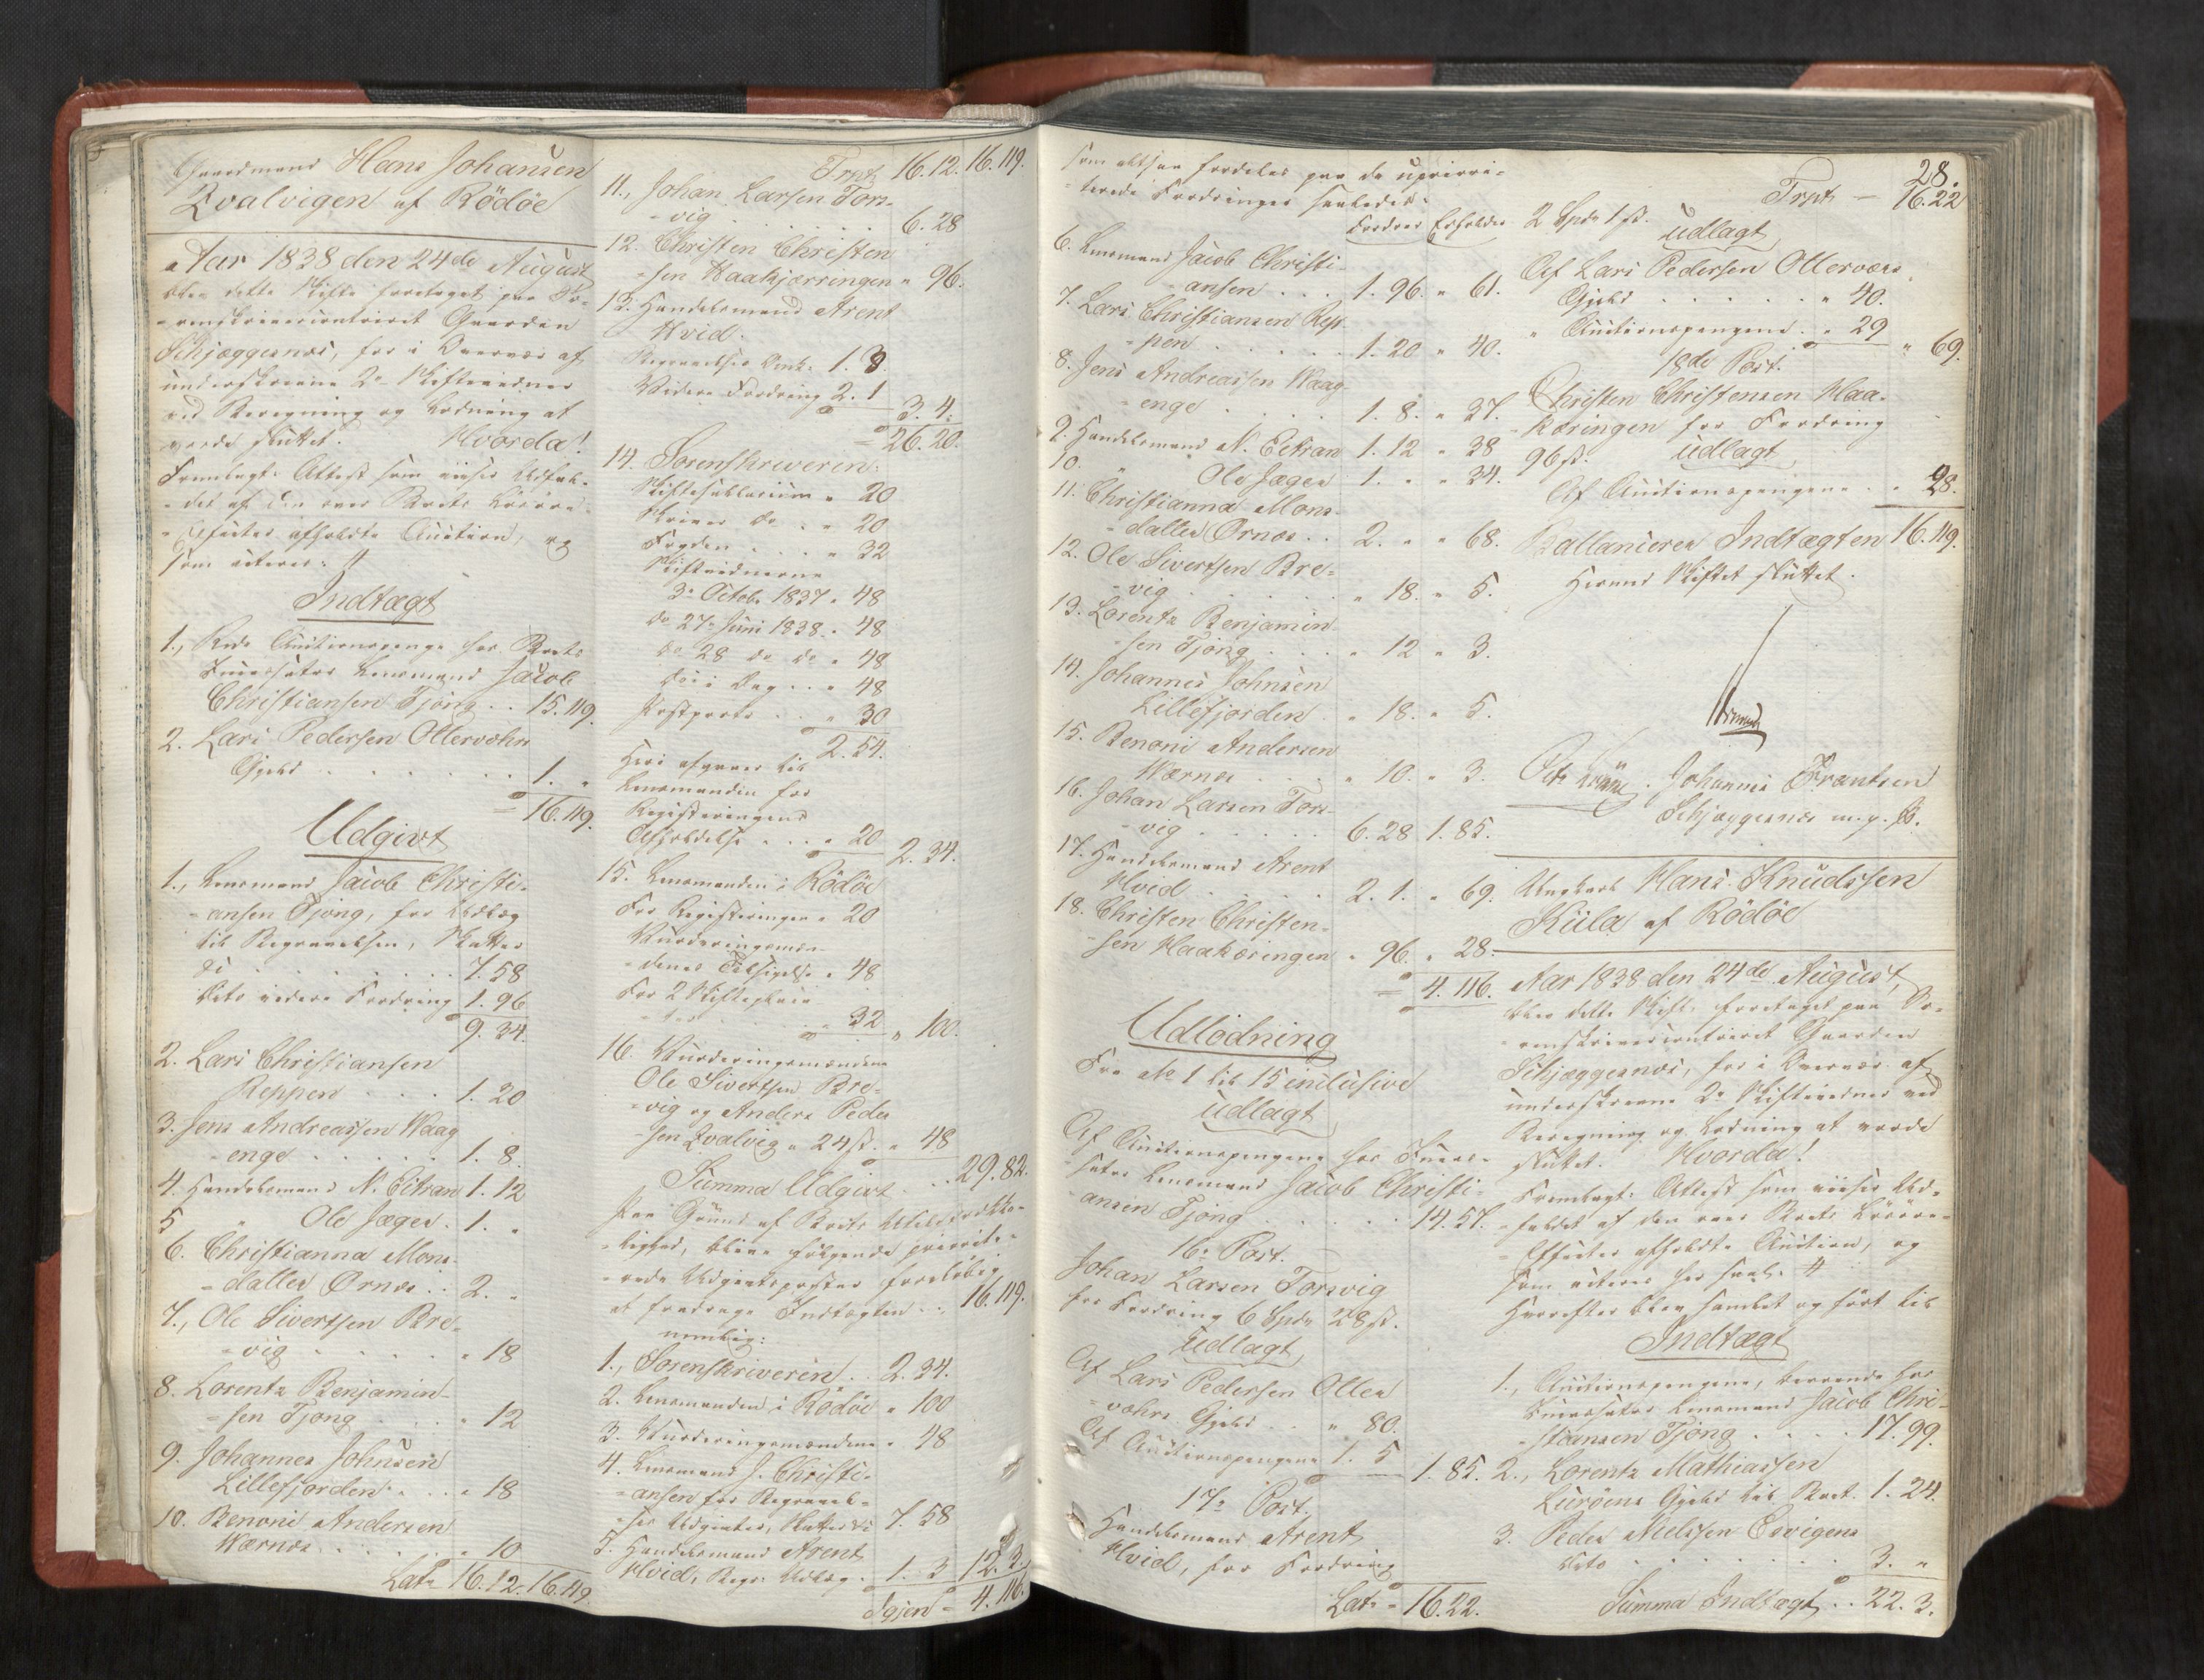 Gaardmand Hans Johansen
Qvalvigen af Rödöe
Aar 1838 den 24de August
blev dette Skifte foretaget paa So-
renskrivercontoiret Gaarden
Schjæggesnæs, hvor i Overvær af
underskrevne 2de Skiftevidner
ved Beregning og Lodning at
vorde sluttet. Hvorda!
Fremlagt: Attest som viiser Udfal-
det af den over Boets Lösöre
Effecter afholdte Auction, og
som acteres: #
Indtægt
1., Auctionspenge hos Boets
Incassator Lensmand Jacob
Christiansen Tjong . . 15.119.
2. Lars Pedersen Ollervæhr
Gjeld . . . . . . 1. "
= 16.119.
Udgivt
1., Lensmand Jacob Christi-
ansen Tjong, for Udlæg
til Begravelsen, Skatter
. . . . . . 7.58
dets videre Fordring 1.96
9.34.
2. Lars Christiansen
Reppen . . . . 1.20
3. Jens Andreassen Waag-
enge . . . . . . 1. 8.
4. Handelsmand N. Eitran 1.12
5 " Ole Jæger. 1. "
6. Christianna Mons-
datter Ørnæs . . 2. "
7., Ole Sivertsen Bre-
vig . . . . . " 18
8. Lorentz Benjamin-
sen Tjong . . . " 12
9. Johannes Johnsen
Lillefjorden . . . " 18
10. Benoni Andersen
Wærnæs . . . . . " 10
Lat: 16.12. 16.119.
Trpt 16.12. 16.119.
11., Johan Larsen Tors-
vig . . . . . . 6.28
12. Christen Christen-
sen Haakjærringen " 96.
13. Handelsmand Arent
Hvid.
Begravelses Omk. 1.3.
Videre Fordring 2.1
3. 4.
= 26.20.
14. Sorenskriveren.
Skiftesallarium " 20
Skriver do . " 20
Fogden . . . " 32
Skiftevidnerne
3de Octobr 1837 " 48
do 27de Juni 1838 " 48
do 28 do do " 48
do i Dag . . " 48
Postporto . . " 30
2.54.
Heri afgaaer til
Lensmanden for
Registeringens
Afholdelse . . . " 20 2.34.
15. Lensmanden i Rödöe
for Registeringen " 20
Vurderingsmæn-
denes Tilsigelse " 48
for 2 Skifteplaca-
ter . . . " 32 " 100.
16. Vurderingsmændene
Ole Sivertsen Bre-
vig og Anders Peder-
sen Qvalvig a 24 ß. " 48
Summa Udgivt . . 29.82.
Paa Grund af Boets Utilstrække-
lighed, blive fölgende priorite-
rede Udgivtsposter forelöbig
at fradrage Indtægten . . 16.119.
nemlig:
1., Sorenskriveren . 2.34.
2. Lensmanden i Rödöe " 100
3. Vurderingsmændene " 48
4. Lensmand J. Christi-
ansen for Begravel-
ses Udgivter, Skatter 7.58
5. Handelsmand Arent
Hvid, Begr. Udlæg . 1. 3 12.3.
Igjen = 4.116.
28.
som altsaa fordeles paa de uprivori-
terede Fordringer saaledes:
Fordrer Erholder
6. Lensmand Jacob Christi-
ansen . . . 1.96. " 61.
7. Lars Christiansen Rep-
pen . . . . . 1.20 " 40.
8. Jens Andreassen Waag-
enge . . . . 1. 8. " 37.
9. Handelsmand N. Eitran 1.12 " 38
10. " Ole Jæger 1. " " 34.
11. Christianna Mons-
datter Ørnæs . . 2. " " 68.
12. Ole Sivertsen Bre-
vig . . . . . " 18. " 5.
13. Lorentz Benjamin-
sen Tjong . . . " 12 " 3.
14. Johannes Johnsen
Lillefjorden . " 18. " 5.
15. Benoni Andersen
Wærnes . . . " 10. " 3.
16. Johan Larsen Tors-
vig . . . . . 6.28 1.85.
17. Handelsmand Arent
Hvid . . . . . 2. 1. " 69.
18. Christen Christen-
sen Haakæringen " 96. " 28.
= 4.116.
Udlodning
Fra No 1 til 15 inclusive
udlagt
Af Auctionspengene hos Incas-
sator Lensmand Jacob Christi-
ansen Tjong . . . . . 14.57.
16de Post.
Johan Larsen Torsvig
for Fordring 6 Spd 28 ß.
udlagt
Af Lars Pedersen Oller-
væhrs Gjeld . . " 80.
Af Auctionspengene 1. 5
1.85.
17de Post.
Handelsmand Arent
Hvid, for Fordring
Lat: = 16.22.
Trpt — 16.22
2 Spdr 1 ß. udlagt
Af Lars Pedersen Ollerværs
Gjeld . . . . . . " 40.
" Auctionspengene . " 29
" 69.
18de Post.
Christen Christensen Haa-
kæringen for Fordring
96 ß. udlagt
Af Auctionspengene . " 28.
Ballancerer Indtægten 16.119.
Hermed Skiftet sluttet.
Johannes Frantsen
Schjæggesnæs m. p. P.
Ungkarl Hans Knudssen
Kiila af Rödöe
Aar 1838 den 24de August,
blev dette Skifte foretaget paa So-
renskrivercontoiret Gaarden
Schjæggesnæs, hvor i Overvær af
underskrevne 2de Skiftevidner ved
Beregning og Lodning at vorde
sluttet. Hvorda!
Fremlagt: Attest som viiser Ud-
faldet af den over Boets Lösöre-
Effecter afholdte Auction, og
som acteres her saal: #
Hvorefter blev samlet og fört til
Indtægt
1., Auctionspengene, beroende hos
Incassator Lensmand Jacob Chri-
stiansen Tjong . . . . 17.99.
2., Lorentz Mathiassen
Luröens Gjeld til Boet. 1.24.
3. Peder Nielssen Esvigens
dito . . . . . . . 3. "
Summa Indtægt . . 22. 3.